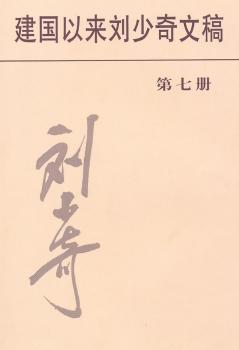 建国以来刘少奇文稿
第七册
刘少奇